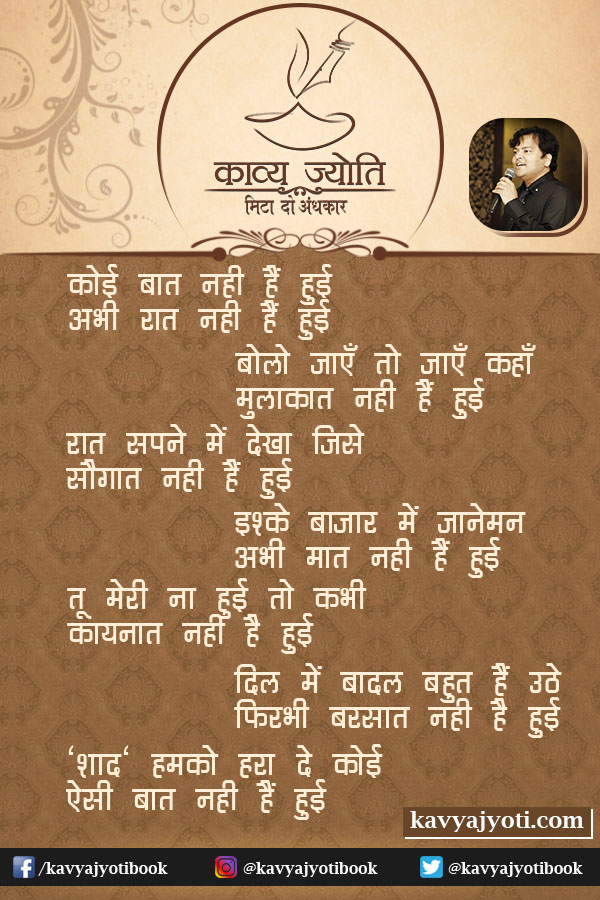 काव्य ज्योति
मिटा दो अंधकार
कोई बात नही हैं हुई
अभी रात नही हैं हुई
बोलो जाएँ तो जाएँ कहाँ
मुलाकात नही हैं हुई
रात सपने में देखा जिसे
सौगात नही हैं हुई
इश्के बाजार में जानेमन
अभी मात नही हैं हुई
तू मेरी ना हुई तो कभी
कायनात नही है हुई
दिल में बादल बहुत हैं उठे
फिरभी बरसात नही है हुई
‘शाद‘ हमको हरा दे कोई
ऐसी बात नही हैं हुई
kavyajyoti.com
/kavyajyotibook @kavyajyotibook @kavyajyotibook